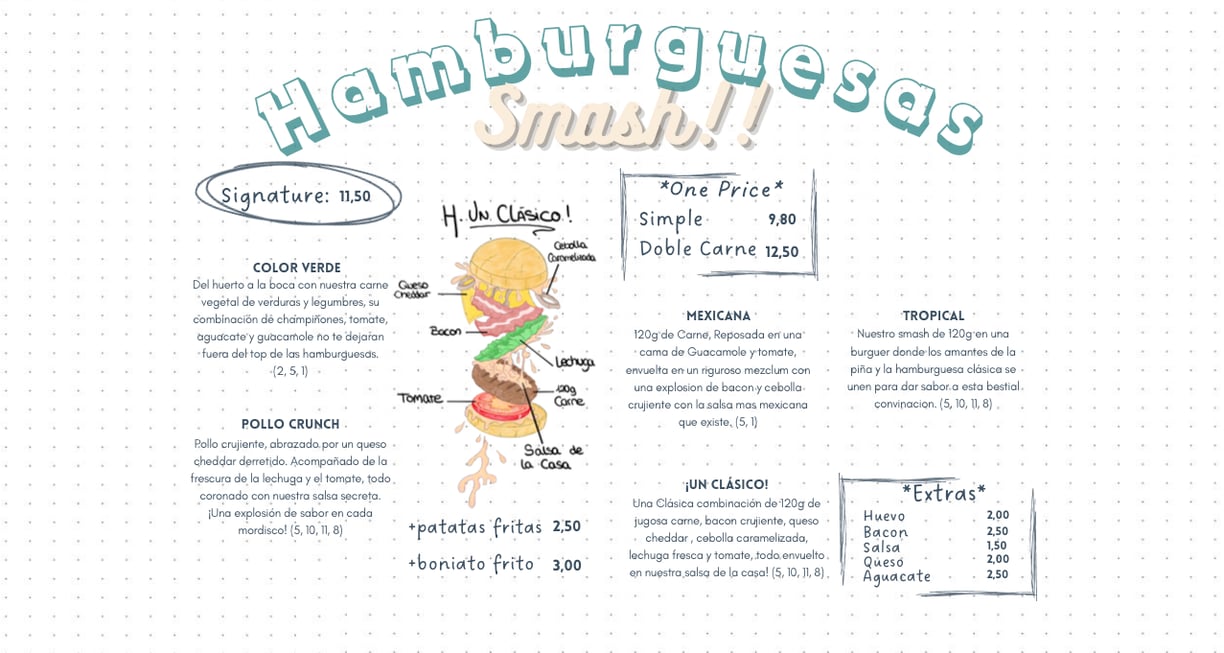 Hamburguesas
Smash!!
Signature: 11,50
COLOR VERDE
Del huerto a la boca con nuestra carne
vegetal de verduras y legumbres, su
combinación de champiñones, tomate,
aguacate y guacamole no te dejaran
fuera del top de las hamburguesas.
(2, 5, 1)
POLLO CRUNCH
Pollo crujiente, abrazado por un queso
cheddar derretido. Acompañado de la
frescura de la lechuga y el tomate, todo
coronado con nuestra salsa secreta.
¡Una explosión de sabor en cada
mordisco! (5, 10, 11, 8)
H. UN CLÁSICO!
Cebolla
Caramelizada
Queso
Cheddar
Bacon
Lechuga
Tomate
120g
Carne
Salsa de
la Casa
+patatas fritas 2,50
+boniato frito 3,00
*One Price*
Simple 9,80
Doble Carne 12,50
MEXICANA
120g de Carne, Reposada en una
cama de Guacamole y tomate,
envuelta en un riguroso mezclum con
una explosion de bacon y cebolla
crujiente con la salsa mas mexicana
que existe. (5, 1)
TROPICAL
Nuestro smash de 120g en una
burguer donde los amantes de la
piña y la hamburguesa clásica se
unen para dar sabor a esta bestial
convinacion. (5, 10, 11, 8)
¡UN CLÁSICO!
Una Clásica combinación de 120g de
jugosa carne, bacon crujiente, queso
cheddar , cebolla caramelizada,
lechuga fresca y tomate, todo envuelto
en nuestra salsa de la casa! (5, 10, 11, 8)
*Extras*
Huevo 2,00
Bacon 2,50
Salsa 1,50
Queso 2,00
Aguacate 2,50